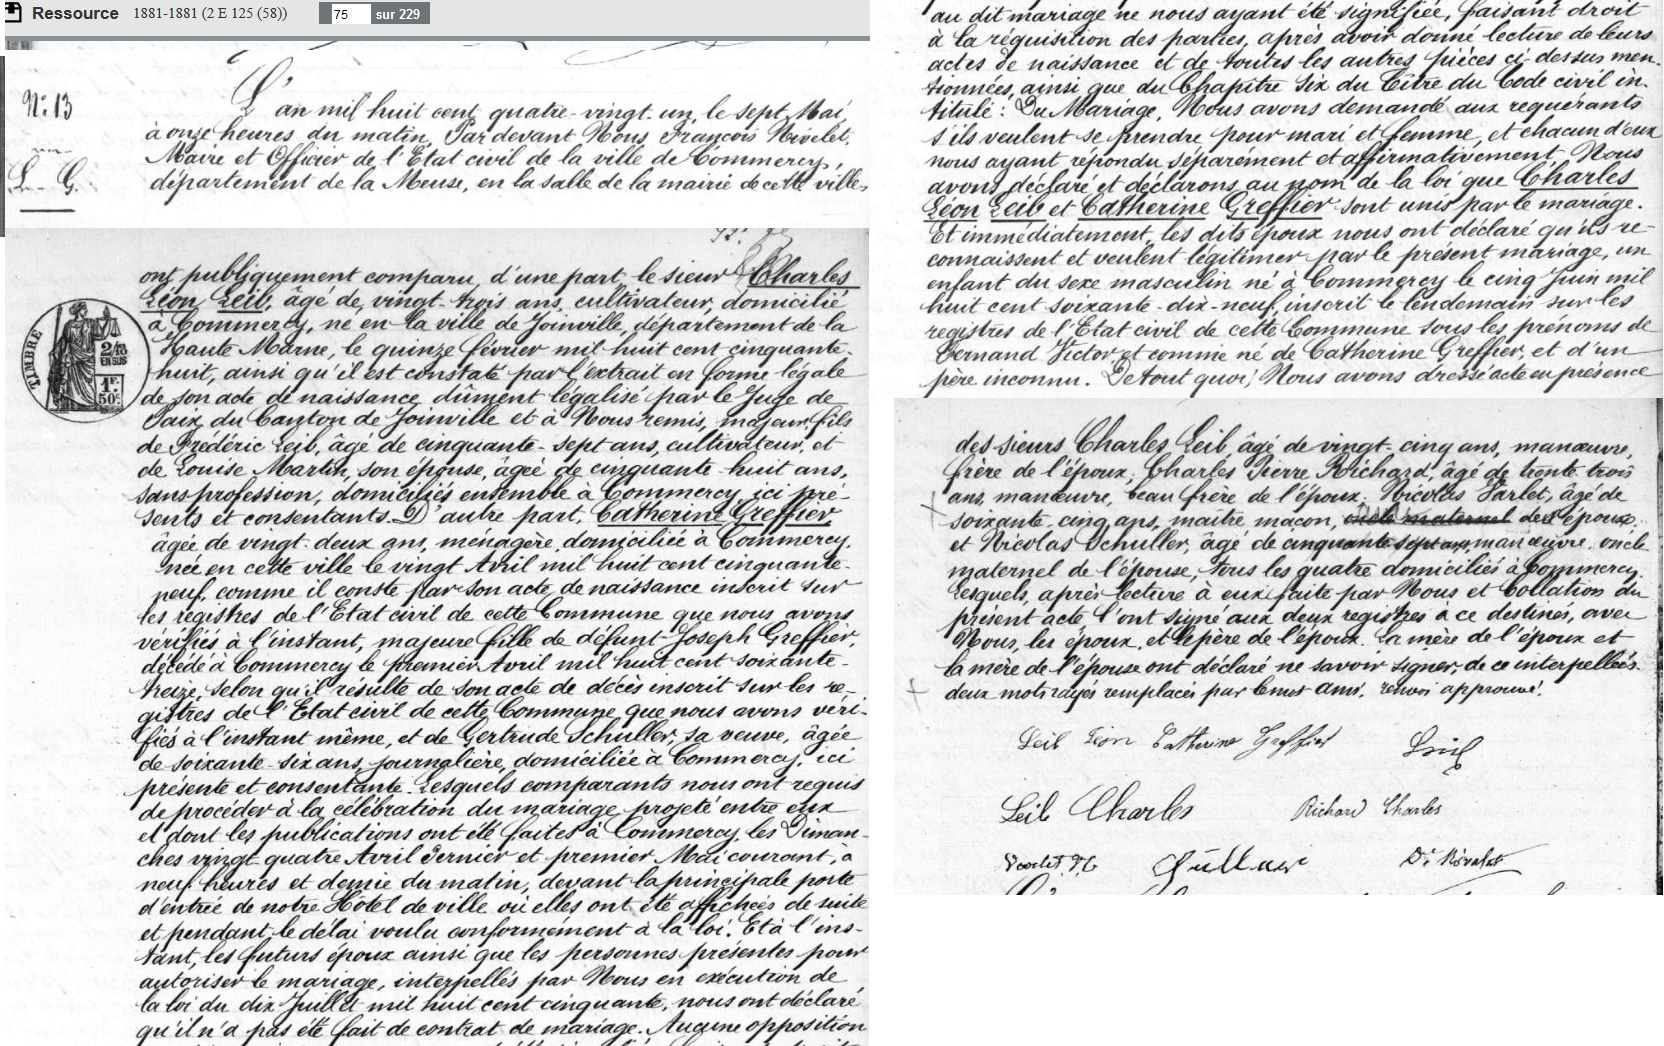 Ressource 1881-1881 (2 E 125 (58)) 75 sur 229
N° 13
L. G.
L'an mil huit cent quatre-vingt un, le sept Mai,
à onze heures du matin, Par devant Nous, François Nivelet,
Maire et Officier de l'Etat civil de la ville de Commercy,
département de la Meuse, en la salle de la mairie de cette ville,
ont publiquement comparu, d'une part le sieur Charles
Léon Leib, âgé de vingt-trois ans, cultivateur, domicilié
à Commercy, né en la ville de Joinville, département de la
Haute Marne, le quinze février mil huit cent cinquante-
huit, ainsi qu'il est constaté par l'extrait en forme légale
de son acte de naissance dûment légalisé par le Juge de
Paix du Canton de Joinville et à Nous remis, majeur, fils
de Frédéric Leib, âgé de cinquante-sept ans, cultivateur, et
de Louise Martin, son épouse, âgée de cinquante-huit ans,
sans profession, domiciliés ensemble à Commercy, ici pré-
sents et consentants. D'autre part, Catherine Greffier
âgée de vingt-deux ans, ménagère, domiciliée à Commercy,
née en cette ville le vingt Avril mil huit cent cinquante-
neuf, comme il conste par son acte de naissance inscrit sur
les registres de l'Etat civil de cette Commune que nous avons
vérifiés à l'instant, majeure fille de défunt Joseph Greffier,
décédé à Commercy le premier Avril mil huit cent soixante-
treize, selon qu'il résulte de son acte de décès inscrit sur les re-
gistres de l'Etat civil de cette Commune que nous avons véri-
fiés à l'instant même, et de Gertrude Schuller, sa veuve, âgée
de soixante-six ans, journalière, domiciliée à Commercy, ici
présente et consentante. Lesquels comparants nous ont requis
de procéder à la célébration du mariage projeté entre eux
et dont les publications ont été faites à Commercy, les Diman-
ches vingt quatre Avril dernier et premier Mai courant, à
neuf heures et demie du matin, devant la principale porte
d'entrée de notre Hôtel de ville où elles ont été affichées de suite
et pendant le délai voulu conformément à la loi. Et à l'ins-
tant, les futurs époux ainsi que les personnes présentes pour
autoriser le mariage, interpellés par Nous en exécution de
la loi du dix Juillet mil huit cent cinquante, nous ont déclaré
qu'il n'a pas été fait de contrat de mariage. Aucune opposition
TIMBRE
2/10
EN SUS
1F.
50c.
au dit mariage ne nous ayant été signifiée, faisant droit
à la réquisition des parties, après avoir donné lecture de leurs
actes de naissance et de toutes les autres pièces ci-dessus men-
tionnées, ainsi que du Chapitre Six du Titre du Code civil in-
titulé : Du Mariage, Nous avons demandé aux requérants
s'ils veulent se prendre pour mari et femme, et chacun d'eux
nous ayant répondu séparément et affirmativement Nous
avons déclaré et déclarons au nom de la loi que Charles
Léon Leib et Catherine Greffier sont unis par le mariage.
Et immédiatement, les dits époux nous ont déclaré qu'ils re-
connaissent et veulent légitimer par le présent mariage, un
enfant du sexe masculin né à Commercy le cinq Juin mil
huit cent soixante-dix-neuf, inscrit le lendemain sur les
registres de l'Etat civil de cette Commune sous les prénoms de
Fernand Victor et comme né de Catherine Greffier, et d'un
père inconnu. De tout quoi, Nous avons dressé acte en présence
des sieurs Charles Leib, âgé de vingt-cinq ans, manœuvre,
frère de l'époux, Charles Pierre Richard, âgé de trente trois
ans, manœuvre, beau frère de l'époux. Nicolas Varlet, âgé de
soixante-cinq ans, maître maçon, oncle maternel de l'époux
et Nicolas Schuller, âgé de cinquante sept ans, manœuvre, oncle
maternel de l'épouse, tous les quatre domiciliés à Commercy.
Lesquels, après lecture à eux faite par Nous et Collation du
présent acte, l'ont signé aux deux registres à ce destinés, avec
Nous, les époux, et le père de l'époux. La mère de l'époux et
la mère de l'épouse ont déclaré ne savoir signer, de ce interpellées.
deux mots rayés remplacés par le mot ami. renvoi approuvé.
Leib Léon Catherine Greffier Leib
Leib Charles Richard Charles